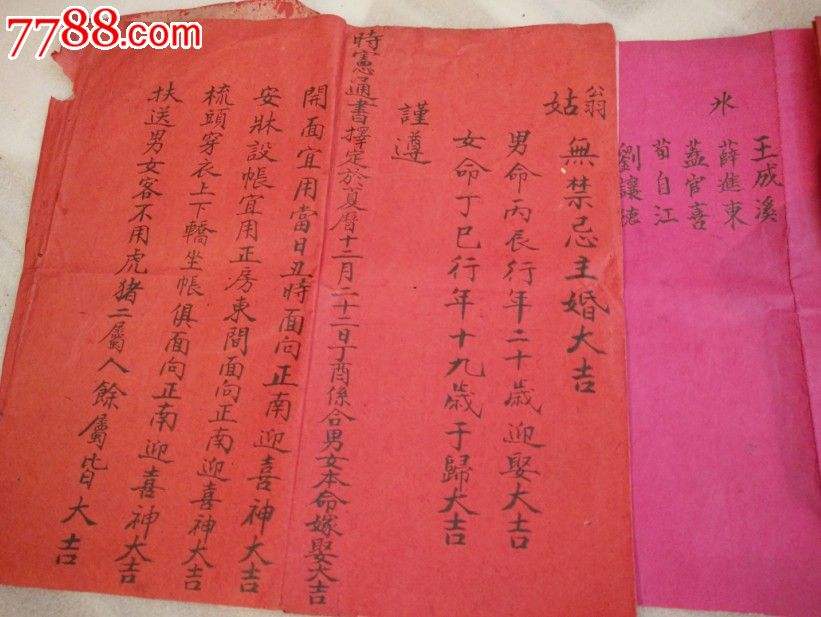 7788.com
王成溪
薛進東
氷 蓋官喜
荀自江
劉讓德
翁姑無禁忌主婚大吉
男命丙辰行年二十歲迎娶大吉
女命丁巳行年十九歲于歸大吉
謹遵
時憲通書擇定於夏曆十二月二十二日丁酉係合男女本命嫁娶大吉
開面宜用當日丑時面向正南迎喜神大吉
安牀設帳宜用正房東間面向正南迎喜神大吉
梳頭穿衣上下轎坐帳俱面向正南迎喜神大吉
扶送男女客不用虎猪二屬人餘屬皆大吉